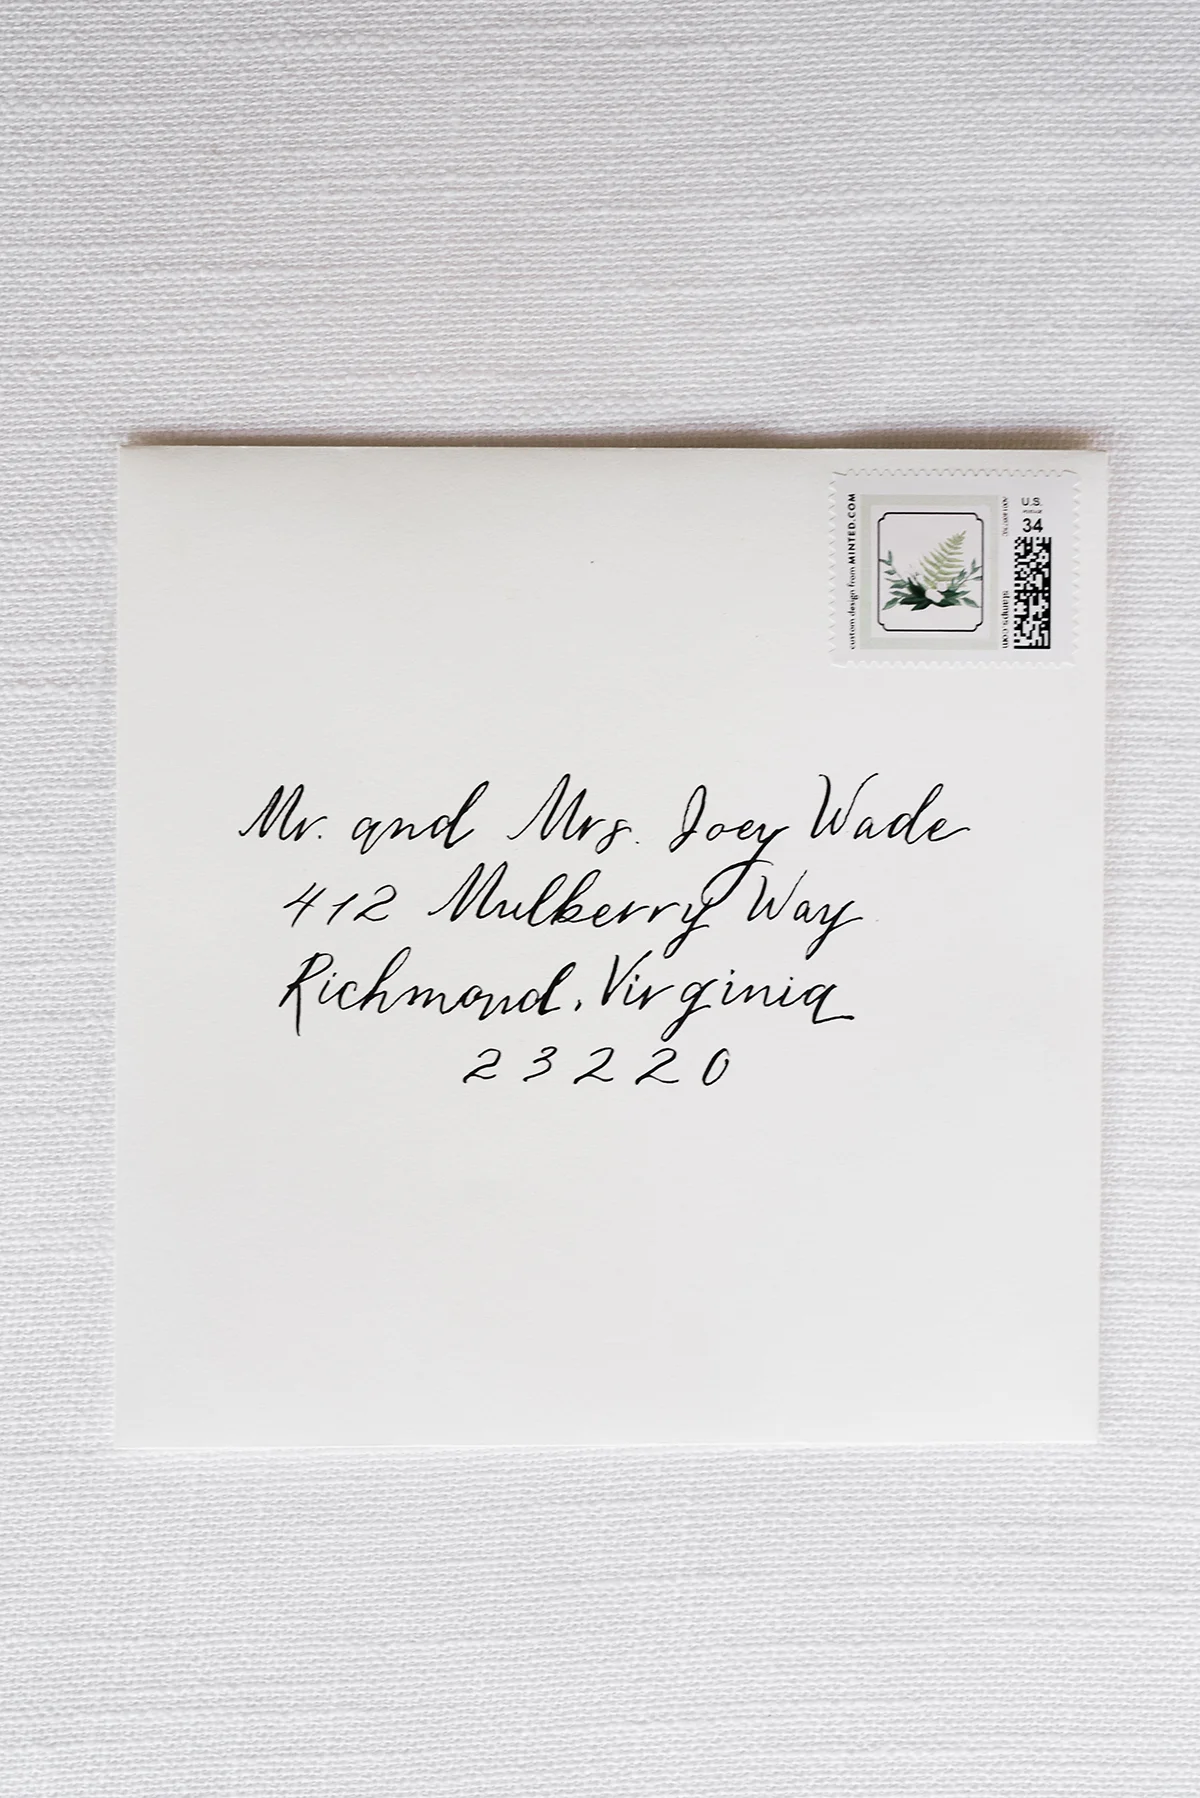 custom design from MINTED.COM
U.S.
34
stamps.com
Mr. and Mrs. Joey Wade
412 Mulberry Way
Richmond, Virginia
23220